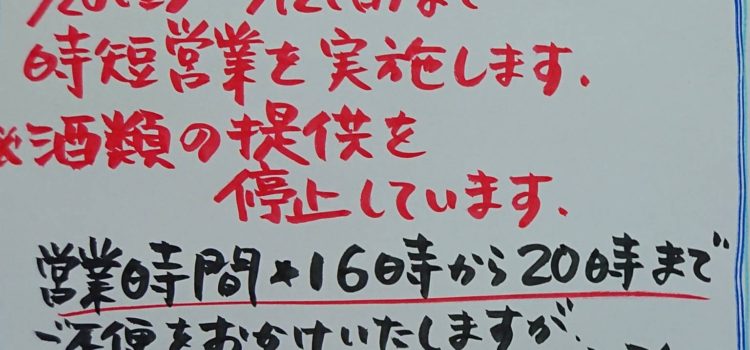 時短営業を実施します.
※酒類の提供を
停止しています.
営業時間*16時から20時まで
ご不便をおかけいたしますが、